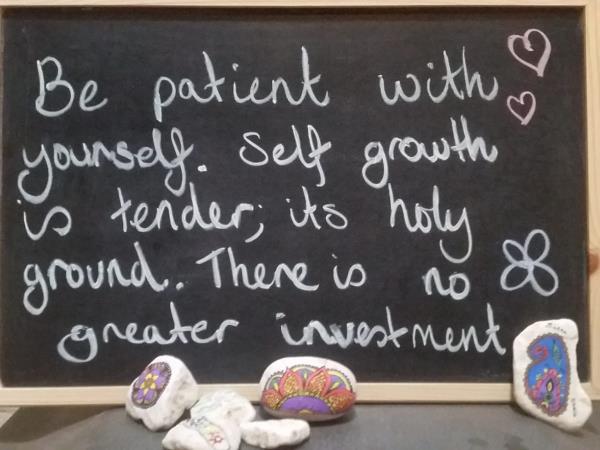 Be patient with
yourself. Self growth
is tender; its holy
ground. There is no
greater investment